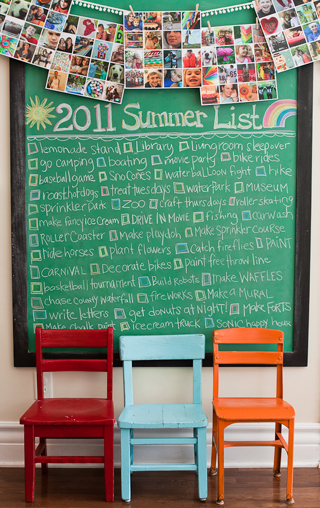 2011 Summer List
lemonade stand Library Livingroom sleepover
go camping boating movie party bike rides
baseball game Sno Cones water balloon fight hike
roast hotdogs treat tuesdays water Park Museum
Sprinkler Park ZOO craft thursdays roller skating
make fancy ice cream DRIVE IN MOVIE fishing carwash
Roller Coaster Make playdoh Make Sprinkler course
ride horses plant flowers Catch fireflies PAINT
CARNIVAL Decorate bikes paint free throw line
basketball tournament Build Robots make WAFFLES
chase County waterfall fireworks Make a MURAL
Write letters get donuts at NIGHT! Make FORTS
Make chalk paint icecream truck SONIC happy hour